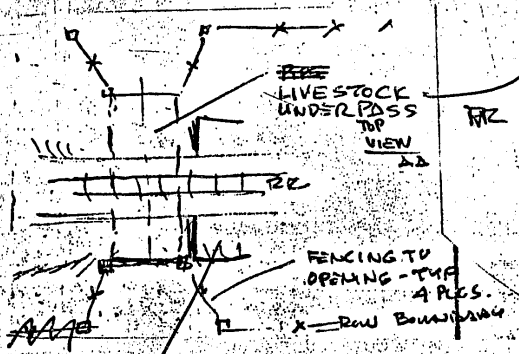 LIVESTOCK
UNDERPASS
TOP
VIEW
AA
RR
RR
FENCING TO
OPENING - TYP
4 PLCS.
x — ROW BOUNDARY